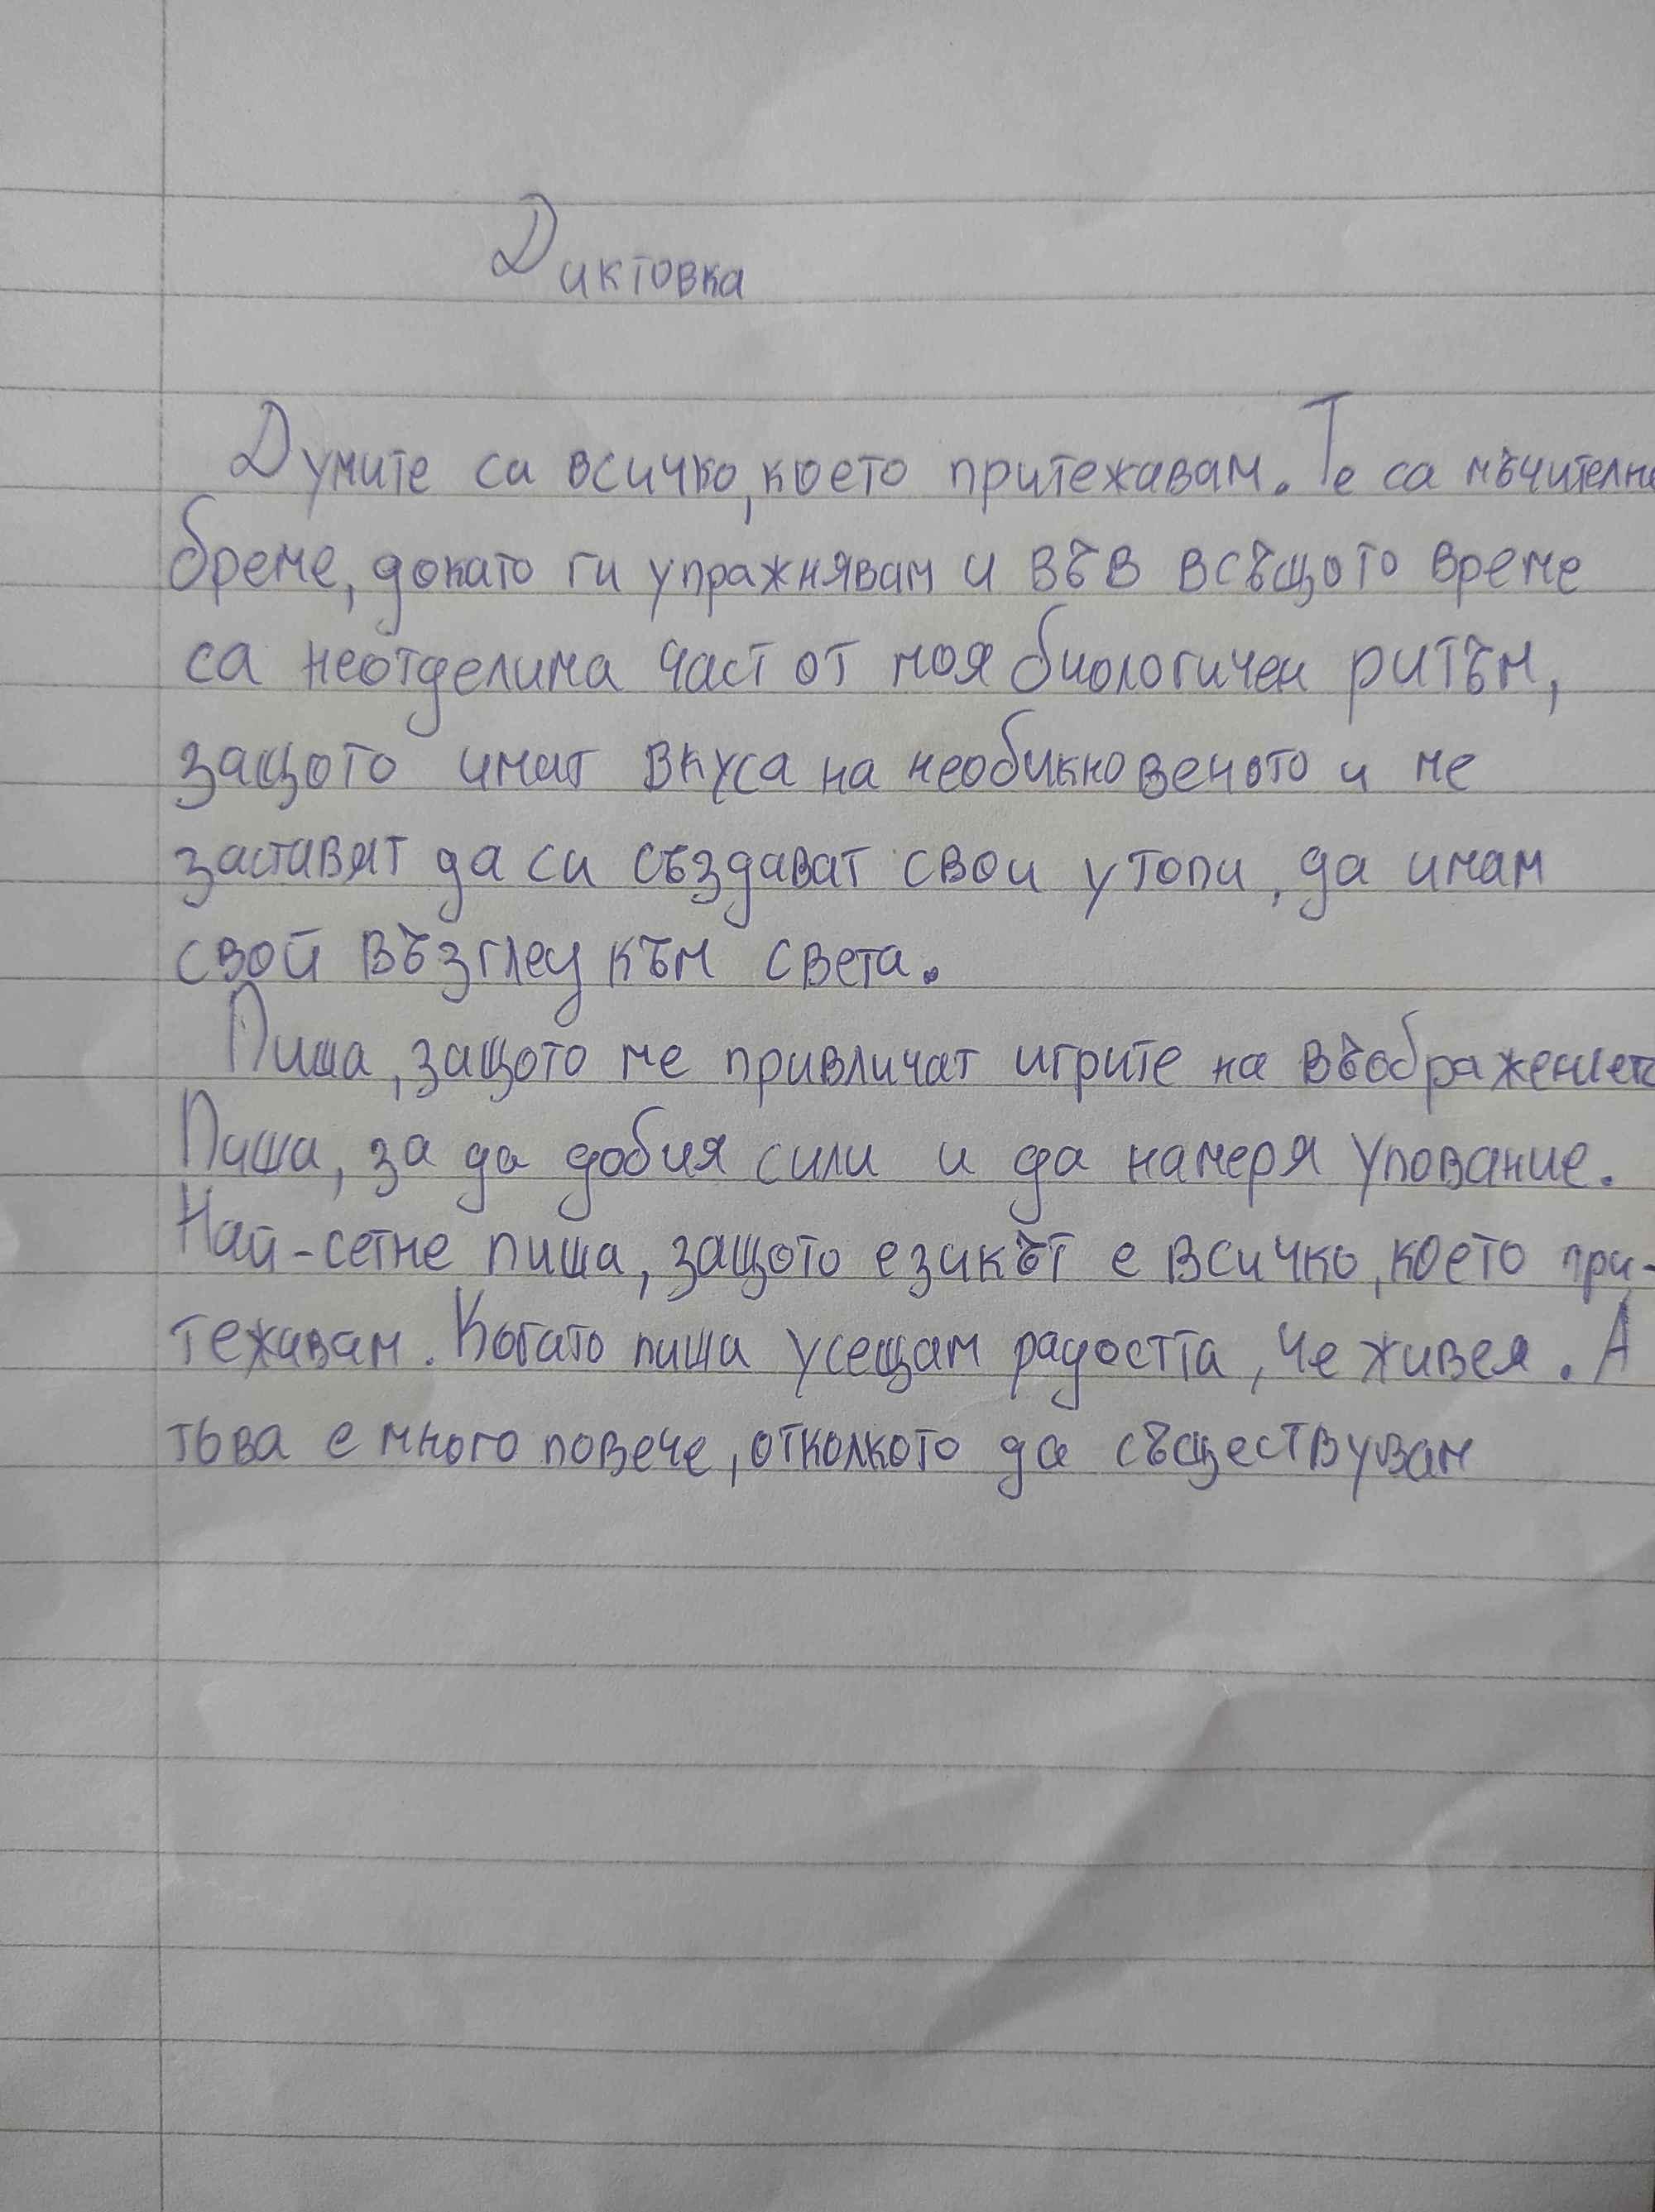 Диктовка
Думите са всичко, което притежавам. Те са мъчително
бреме, докато ги упражнявам и във всъщото време
са неотделима част от моя биологичен ритъм,
защото имат вкуса на необикновеното и ме
заставят да си създават свои утопи, да имам
свой възглед към света.
Пиша, защото ме привличат игрите на въображението
Пиша, за да добия сили и да намеря упование.
Най-сетне пиша, защото езикът е всичко, което при-
тежавам. Когато пиша усещам радостта, че живея. А
това е много повече, отколкото да съществувам